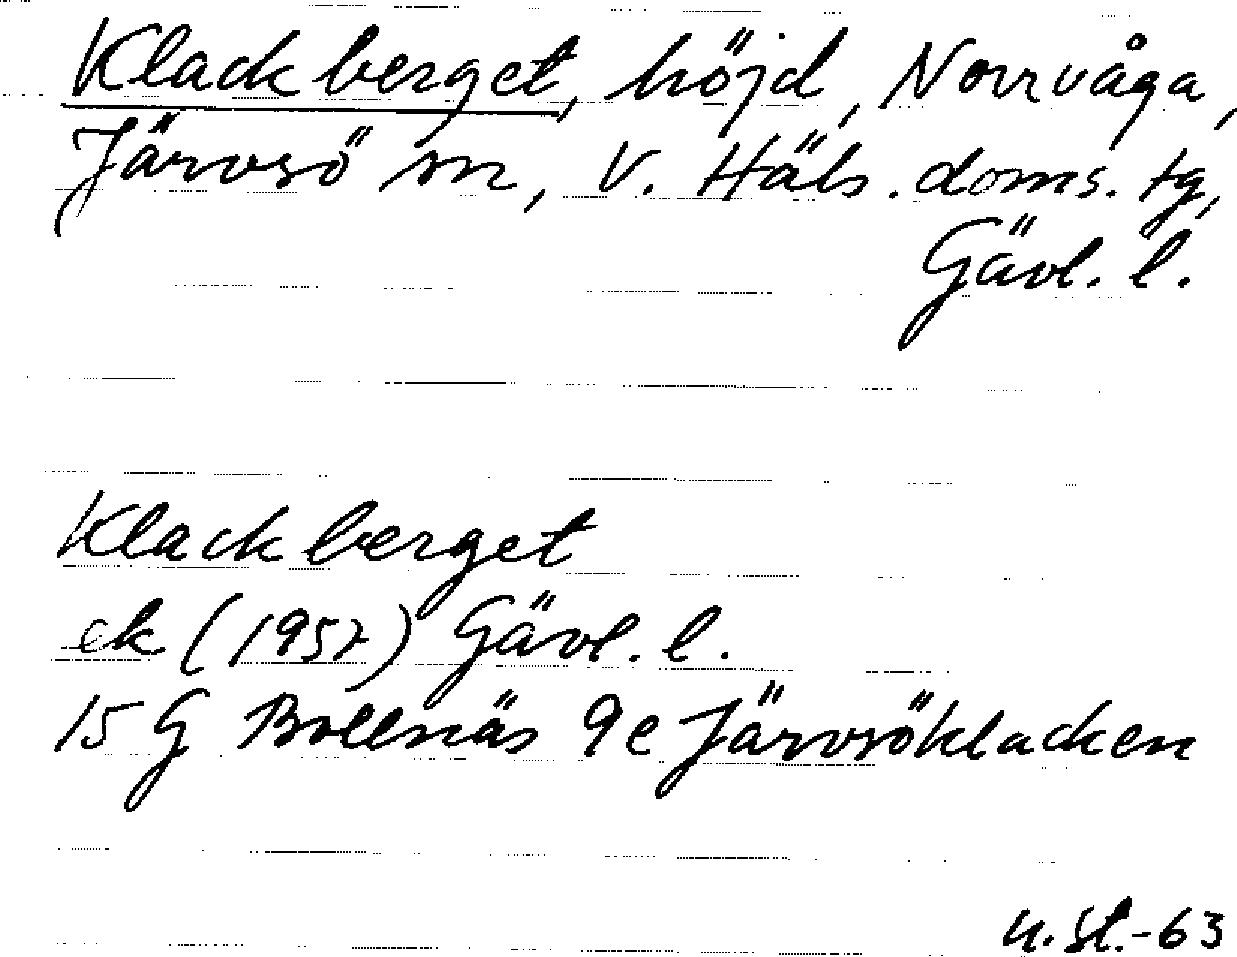 Klackberget, höjd, Norrvåga,
Järvsö sn, V. Häls. doms. tg,
Gävl. l.
Klackberget
ek (1957) Gävl. l.
15 G Bollnäs 9e Järvsöklacken
U. St. -63